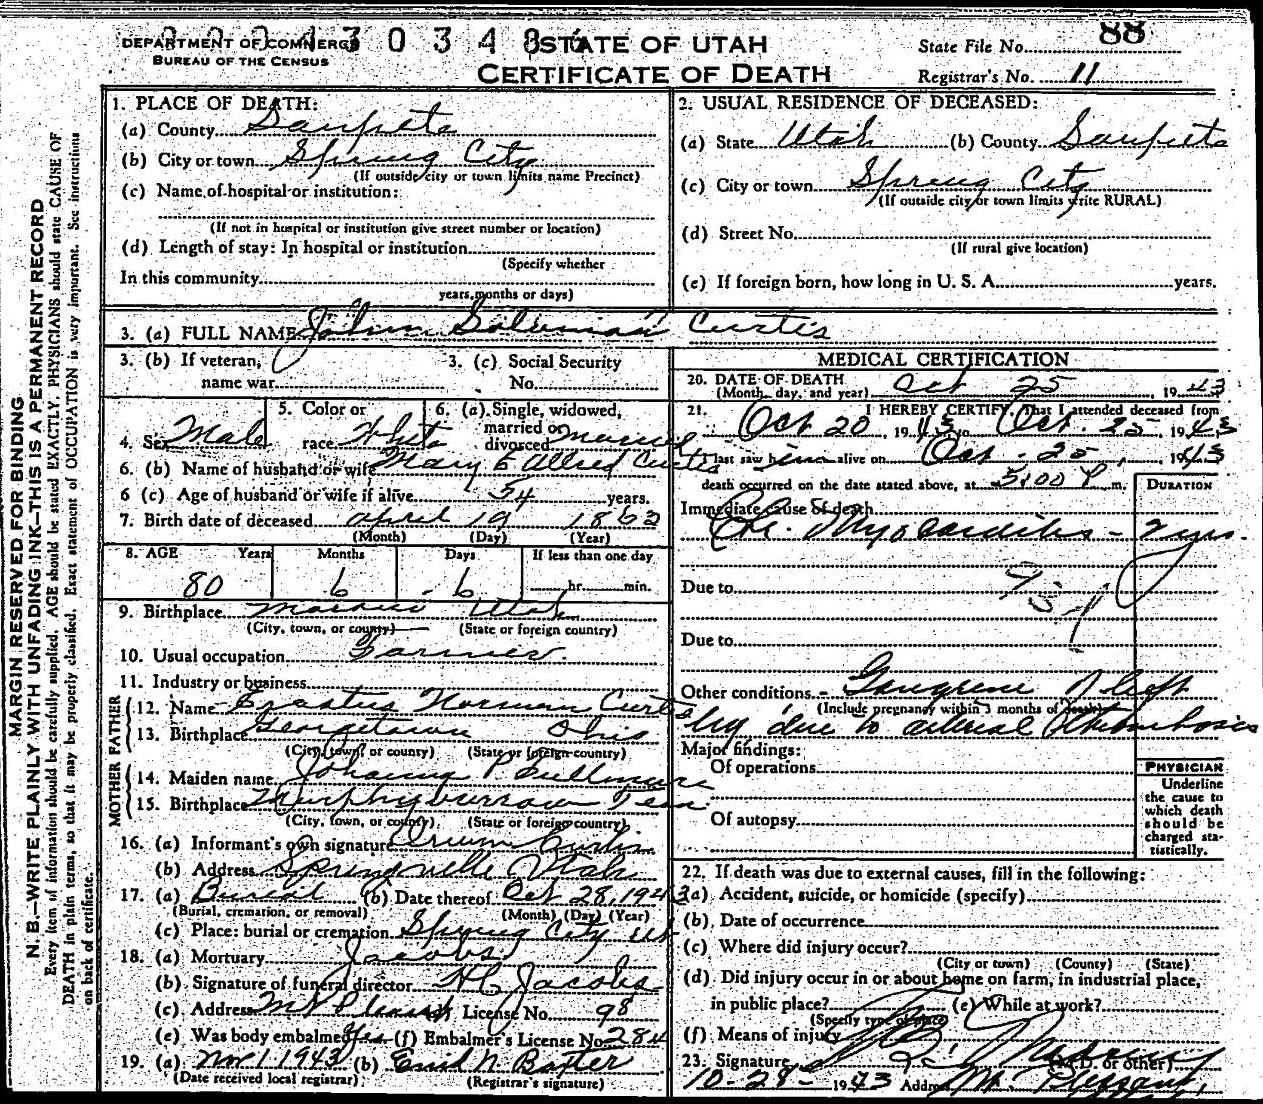 DEPARTMENT OF COMMERCE
BUREAU OF THE CENSUS
STATE OF UTAH
CERTIFICATE OF DEATH
State File No. 88
Registrar's No. 11
MARGIN RESERVED FOR BINDING
N. B.—WRITE PLAINLY WITH UNFADING INK—THIS IS A PERMANENT RECORD
Every item of information should be carefully supplied. AGE should be stated EXACTLY. PHYSICIANS should state CAUSE OF
DEATH in plain terms, so that it may be properly classified. Exact statement of OCCUPATION is very important. See instructions
on back of certificate.
1. PLACE OF DEATH:
(a) County Sanpete
(b) City or town Spring City
(If outside city or town limits name Precinct)
(c) Name of hospital or institution:
(If not in hospital or institution give street number or location)
(d) Length of stay: In hospital or institution
(Specify whether
In this community
years, months or days)
2. USUAL RESIDENCE OF DECEASED:
(a) State Utah (b) County Sanpete
(c) City or town Spring City
(If outside city or town limits write RURAL)
(d) Street No.
(If rural give location)
(e) If foreign born, how long in U. S. A. years.
3. (a) FULL NAME John Soloman Curtis
3. (b) If veteran, name war
3. (c) Social Security No.
4. Sex Male
5. Color or race White
6. (a) Single, widowed, married or divorced married
6. (b) Name of husband or wife Mary E Allred Curtis
6 (c) Age of husband or wife if alive 54 years.
7. Birth date of deceased April 19 1863
(Month) (Day) (Year)
8. AGE Years Months Days If less than one day
80 6 6 hr. min.
9. Birthplace Utah
(City, town, or county) (State or foreign country)
10. Usual occupation Farmer
11. Industry or business
FATHER
12. Name Erastus Norman Curtis
13. Birthplace Georgetown Ohio
(City, town, or county) (State or foreign country)
MOTHER
14. Maiden name Johanna P Fullmer
15. Birthplace Tenn
(City, town, or county) (State or foreign country)
16. (a) Informant's own signature Curtis
(b) Address Springville Utah
17. (a) Burial (b) Date thereof Oct 28, 1943
(Burial, cremation, or removal) (Month) (Day) (Year)
(c) Place: burial or cremation Spring City Ut
18. (a) Mortuary Jacobs
(b) Signature of funeral director H C Jacobs
(c) Address Mt Pleasant License No. 98
(e) Was body embalmed Yes (f) Embalmer's License No. 284
19. (a) Nov 1 1943 (b) Enid N. Baxter
(Date received local registrar) (Registrar's signature)
MEDICAL CERTIFICATION
20. DATE OF DEATH Oct 25, 1943
(Month, day, and year)
21. I HEREBY CERTIFY, That I attended deceased from
Oct 20, 1943 to Oct. 25, 1943
I last saw him alive on Oct. 25, 1943
death occurred on the date stated above, at 5:00 P. m.
DURATION
Immediate cause of death
Chr. Myocarditis - 2 yrs.
Due to
Due to
Other conditions Gangrene of left
(Include pregnancy within 3 months of death)
leg due to arterial thrombosis
Major findings:
Of operations
Of autopsy
PHYSICIAN
Underline
the cause to
which death
should be
charged sta-
tistically.
22. If death was due to external causes, fill in the following:
(a) Accident, suicide, or homicide (specify)
(b) Date of occurrence
(c) Where did injury occur?
(City or town) (County) (State)
(d) Did injury occur in or about home on farm, in industrial place,
in public place? (e) While at work?
(Specify type of place)
(f) Means of injury
23. Signature (M.D. or other)
10-28-1943 Address Mt. Pleasant,